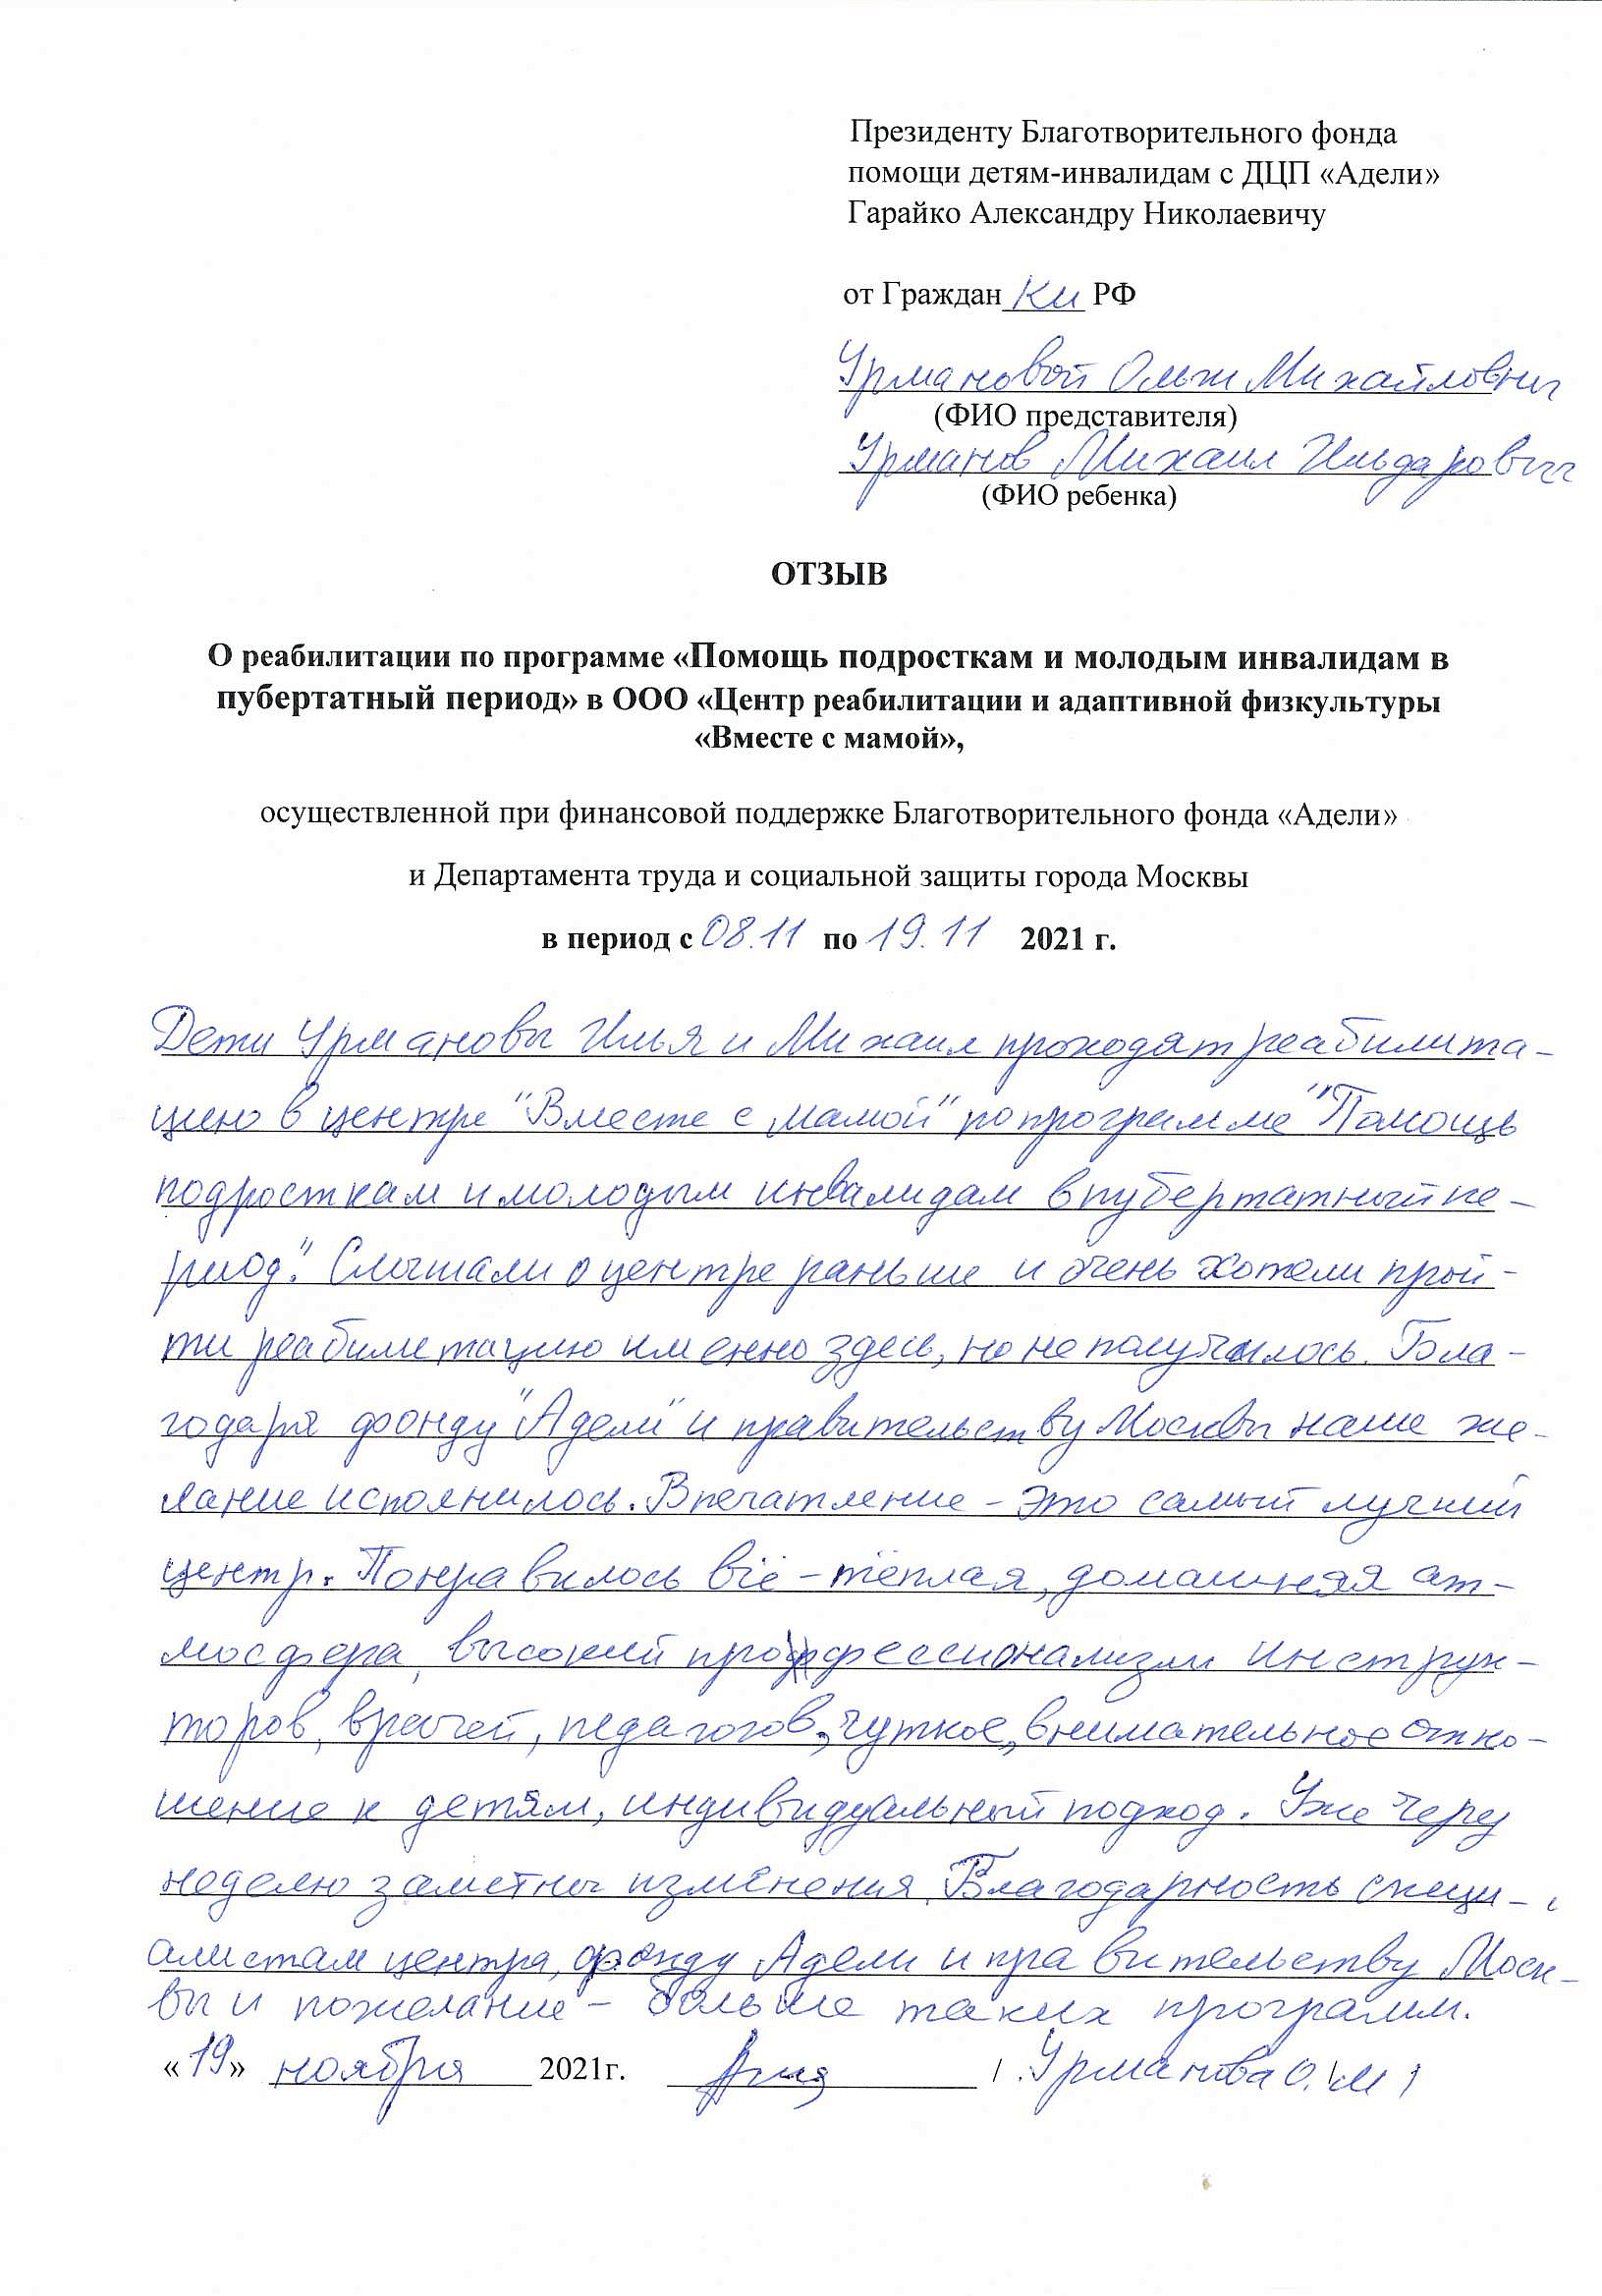 Президенту Благотворительного фонда
помощи детям-инвалидам с ДЦП «Адели»
Гарайко Александру Николаевичу
от Граждан ки РФ
Урмановой Ольги Михайловны
(ФИО представителя)
Урманов Михаил Ильдарович
(ФИО ребенка)
ОТЗЫВ
О реабилитации по программе «Помощь подросткам и молодым инвалидам в
пубертатный период» в ООО «Центр реабилитации и адаптивной физкультуры
«Вместе с мамой»,
осуществленной при финансовой поддержке Благотворительного фонда «Адели»
и Департамента труда и социальной защиты города Москвы
в период с 08.11 по 19.11 2021 г.
Дети Урмановы Илья и Михаил проходят реабилита-
цию в центре "Вместе с мамой" по программе "Помощь
подросткам и молодым инвалидам в пубертатный пе-
риод". Слышали о центре раньше и очень хотели прой-
ти реабилитацию именно здесь, но не получилось. Бла-
годаря фонду "Адели" и правительству Москвы наше же-
лание исполнилось. Впечатление - это самый лучший
центр. Понравилось всё - тёплая, домашняя ат-
мосфера, высокий профессионализм инструк-
торов, врачей, педагогов, чуткое, внимательное отно-
шение к детям, индивидуальный подход. Уже через
неделю заметны изменения. Благодарность специ-
алистам центра, фонду Адели и правительству Моск-
вы и пожелание - больше таких программ.
«19» ноября 2021г. / Урманова О.М /